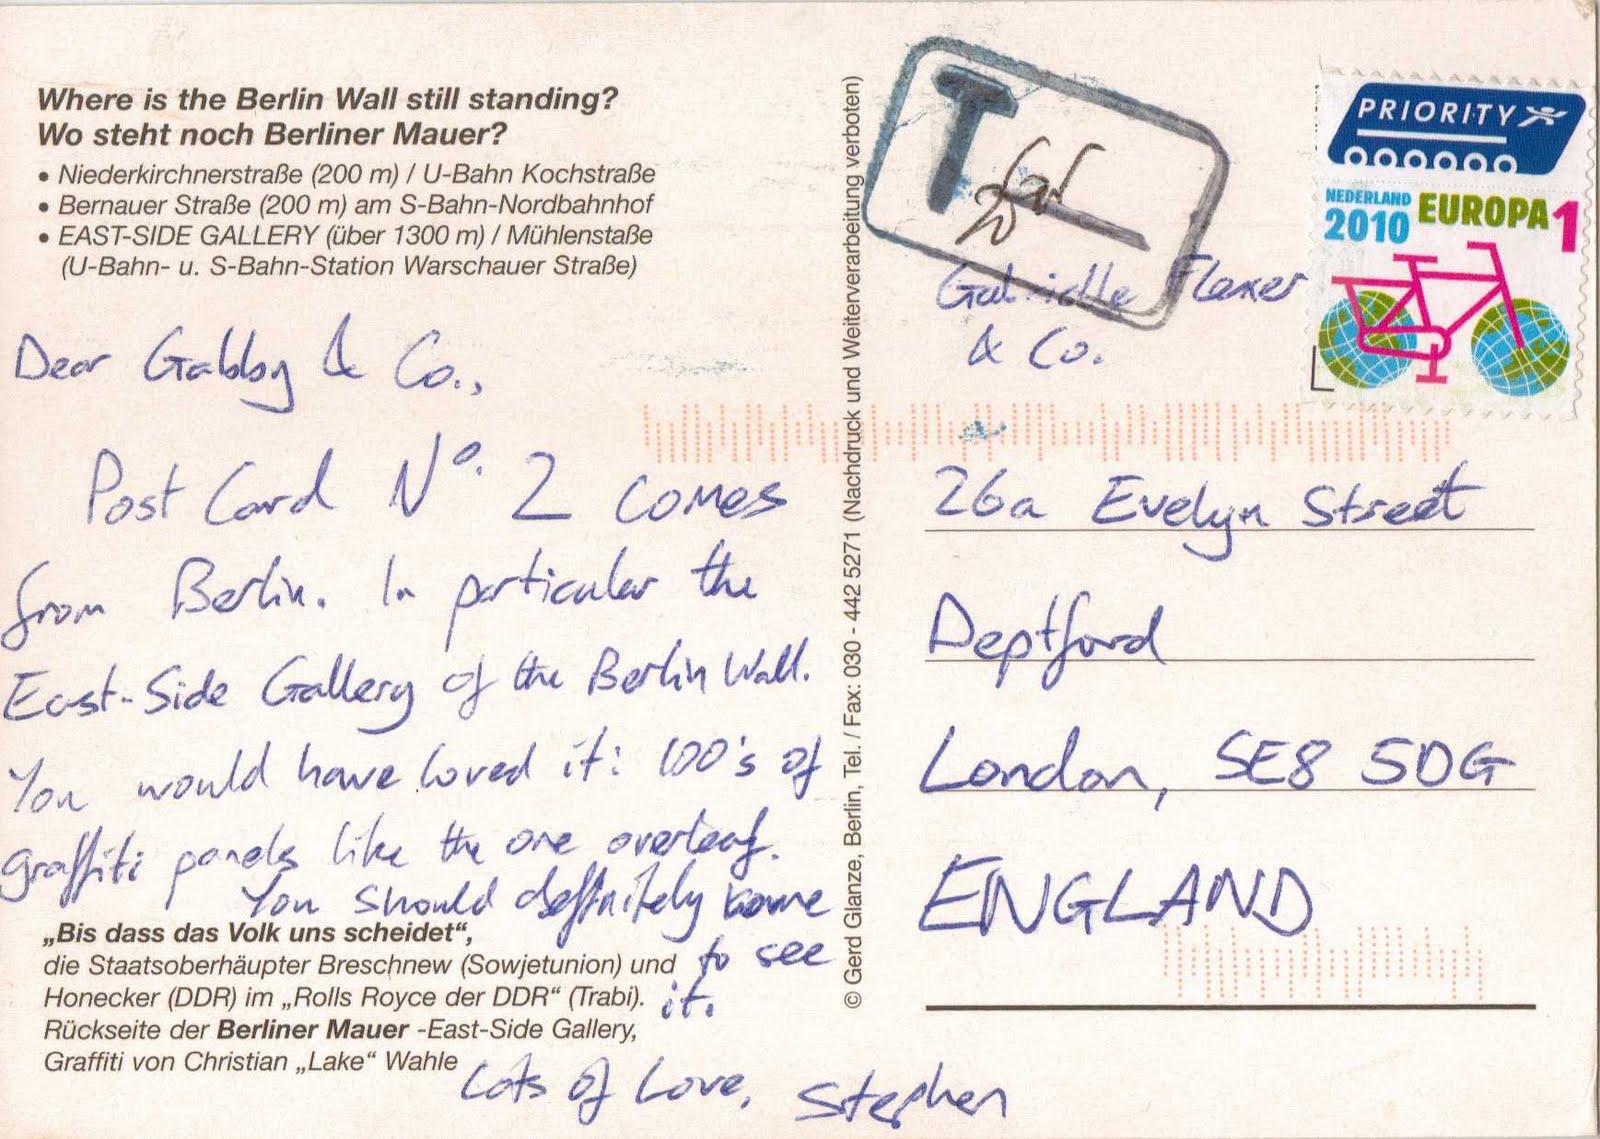 Where is the Berlin Wall still standing?
Wo steht noch Berliner Mauer?
• Niederkirchnerstraße (200 m) / U-Bahn Kochstraße
• Bernauer Straße (200 m) am S-Bahn-Nordbahnhof
• EAST-SIDE GALLERY (über 1300 m) / Mühlenstaße
(U-Bahn- u. S-Bahn-Station Warschauer Straße)
Dear Gabby & Co.,
Post Card Nº. 2 comes
from Berlin. In particular the
East-Side Gallery of the Berlin Wall.
You would have loved it: 100's of
graffiti panels like the one overleaf.
You should definitely come
to see
it.
Lots of Love, Stephen
„Bis dass das Volk uns scheidet“,
die Staatsoberhäupter Breschnew (Sowjetunion) und
Honecker (DDR) im „Rolls Royce der DDR“ (Trabi).
Rückseite der Berliner Mauer -East-Side Gallery,
Graffiti von Christian „Lake“ Wahle
© Gerd Glanze, Berlin, Tel. / Fax: 030 - 442 5271 (Nachdruck und Weiterverarbeitung verboten)
T
PRIORITY
NEDERLAND
2010 EUROPA 1
Gabrielle Flexer
& Co.
26a Evelyn Street
Deptford
London, SE8 5DG
ENGLAND